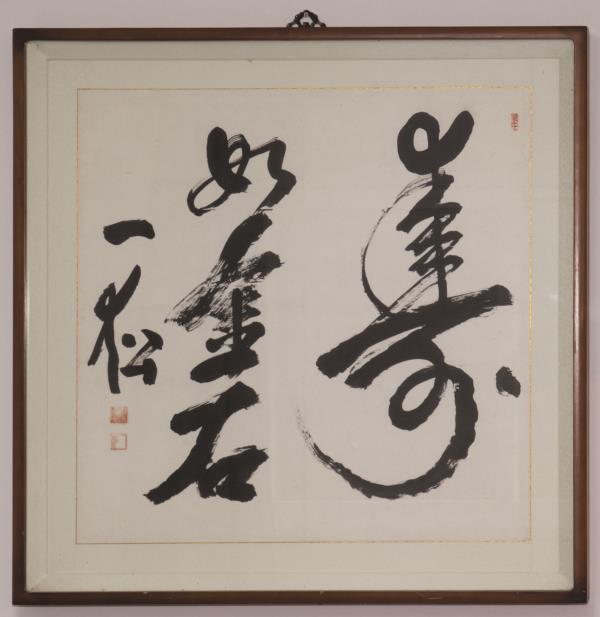 寿
如金石
一松